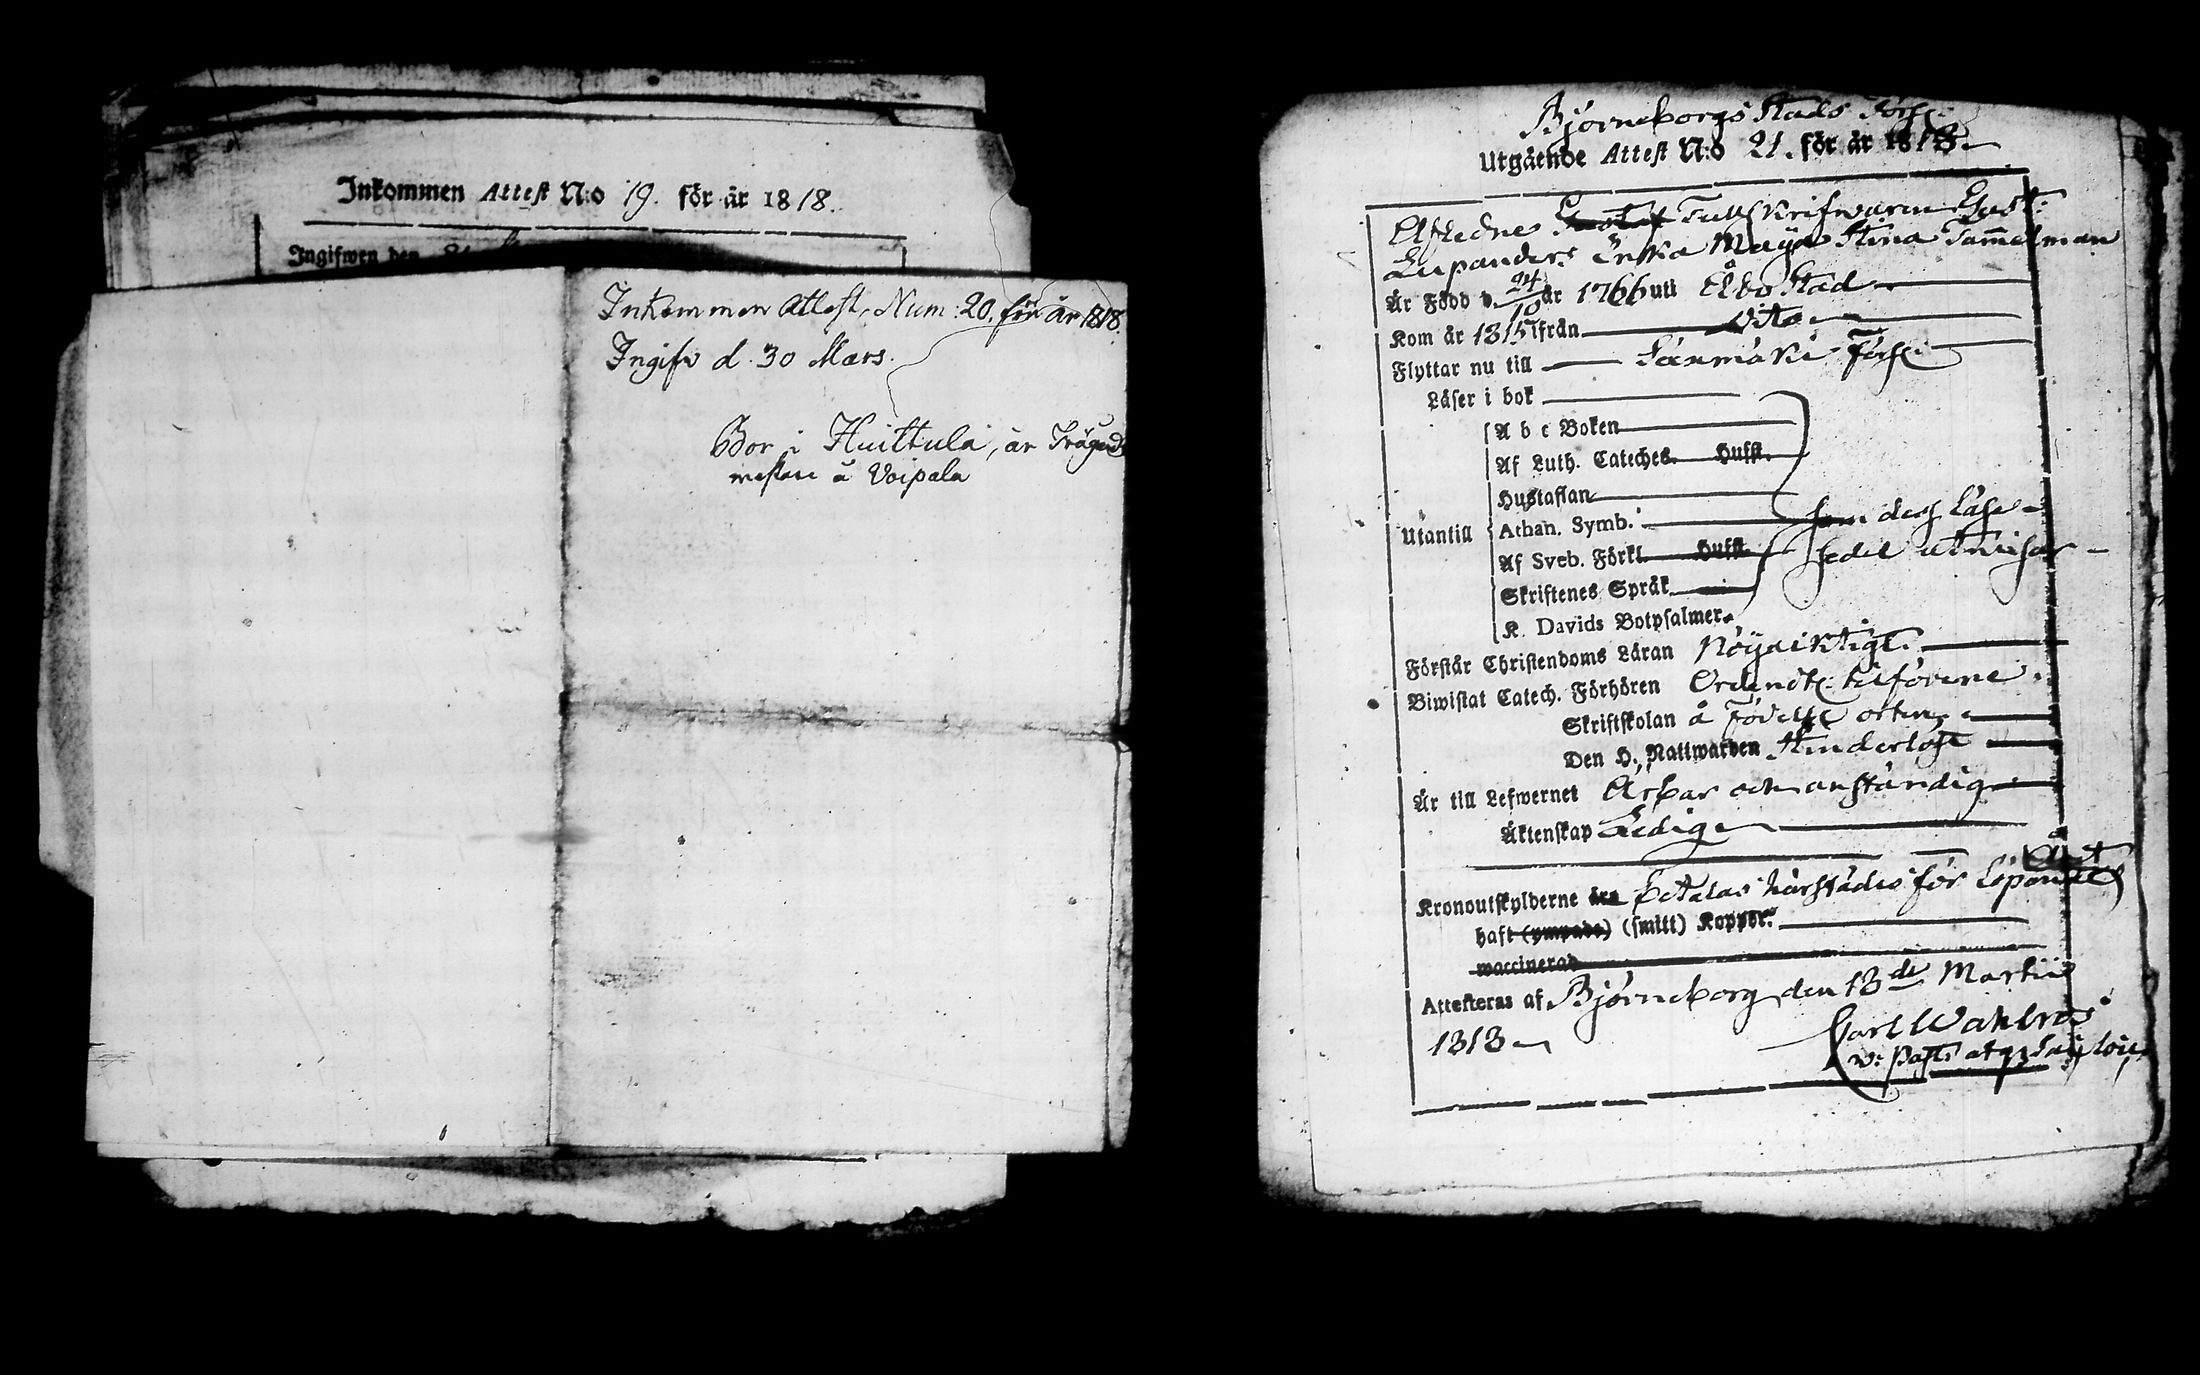 Inkommen Attest N:o 19. för år 1818.
Ingifwen den
Inkommen Attest, Num: 20. för år 1818.
Ingifv d. 30 Mars.
Bor i Huittula, är Trägårds
mästare å Voipala
Björneborgs Stads Förs:
Utgående Attest N:o 21. för år 1818.
Afledne Tullskrifwaren Gust:
Lupanders Enka Maja Stina Tammelman
Är Född d. 24/10 år 1766 uti Åbo Stad
Kom år 1815 ifrån
Flyttar nu till Säxmäki Förs:
Läser i bok
A b c Boken
Af Luth. Cateches. Hufst.
Hustaflan
Utantill Athan. Symb. som dess läse-
Af Sveb. Förkl. Hufst. sedel utvisar
Skriftenes Språk
K. Davids Botpsalmer
Förstår Christendoms Läran Nöjacktigt.
Biwistat Catech. Förhören Ordentl: tilförene.
Skriftskolan å Födelse orten
Den H. Nattwarden Hinderlöst
Är till Lefwernet Ärbar och anständig
Äktenskap Ledig
Kronoutskylderne betalas härstädes för löpande
haft (ympade) (smitt) Koppor.
waccinerad
Attesteras af Björneborg den 13de Martii
1818
Carl Wahlroos
v: Past: